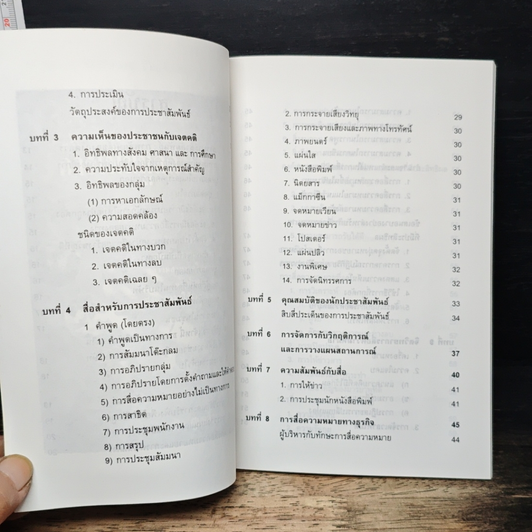 4. การประเมิน
วัตถุประสงค์ของการประชาสัมพันธ์
บทที่ 3 ความเห็นของประชาชนกับเจตคติ
1. อิทธิพลทางสังคม ศาสนา และ การศึกษา
2. ความประทับใจจากเหตุการณ์สำคัญ
3. อิทธิพลของกลุ่ม
(1) การหาเอกลักษณ์
(2) ความสอดคล้อง
ชนิดของเจตคติ
1. เจตคติในทางบวก
2. เจตคติในทางลบ
3. เจตคติเฉลย ๆ
บทที่ 4 สื่อสำหรับการประชาสัมพันธ์
1 คำพูด (โดยตรง)
1) คำพูดเป็นทางการ
2) การสัมมนาโต๊ะกลม
3) การอภิปรายกลุ่ม
4) การอภิปรายโดยการตั้งคำถามและให้
5) การสื่อความหมายอย่างไม่เป็นทางการ
6) การสาธิต
7) การประชุมพนักงาน
8) การสรุป
9) การประชุมสัมมนา
2. การกระจายเสียงวิทยุ 29
3. การกระจายเสียงและภาพทางโทรทัศน์ 30
4. ภาพยนตร์ 30
5. แผ่นใส 30
6. หนังสือพิมพ์ 30
7. นิตยสาร 30
8. แม็กกาซีน 31
9. จดหมายเวียน 31
10. จดหมายข่าว 31
11. โปสเตอร์ 31
12. แผ่นปลิว 31
13. งานพิเศษ 32
14. การจัดนิทรรศการ 32
บทที่ 5 คุณสมบัติของนักประชาสัมพันธ์ 33
สิบสี่ประเด็นของการประชาสัมพันธ์ 34
บทที่ 6 การจัดการกับวิกฤติการณ์
และการวางแผนสถานการณ์ 37
บทที่ 7 ความสัมพันธ์กับสื่อ 40
1. การให้ข่าว 41
2. การประชุมนักหนังสือพิมพ์ 41
บทที่ 8 การสื่อความหมายทางธุรกิจ 45
ผู้บริหารกับทักษะการสื่อความหมาย 44